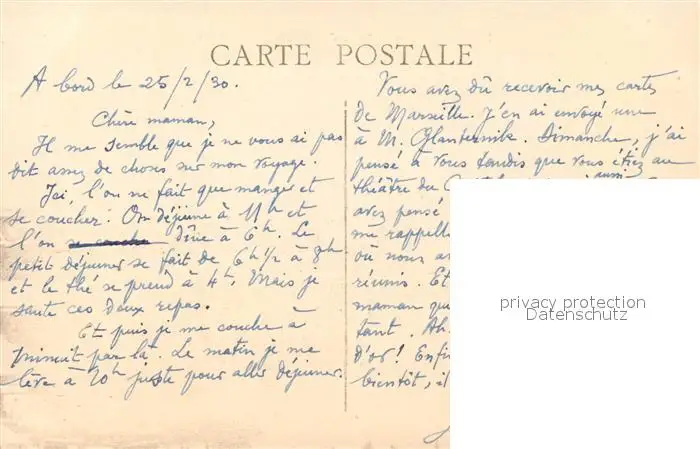 CARTE POSTALE
A bord le 25/2/30.
Chère maman,
Il me semble que je ne vous ai pas
dit assez de choses sur mon voyage.
Ici, l'on ne fait que manger et
se coucher. On déjeune à 11h et
l'on dîne à 6h. Le
petit déjeuner se fait de 6h1/2 à 8h
et le thé se prend à 4h. Mais je
saute ces deux repas.
Et puis je me couche à
minuit par là. Le matin je me
lève à 10h juste pour aller déjeuner.
Vous avez dû recevoir mes cartes
de Marseille. J'en ai envoyé une
à M. Dimanche, j'ai
pensé à vous tandis que vous étiez au
théâtre du
avez pensé
me rappelle
où nous a
réunis. Et
maman qu
tant. Ah
d'or! Enfi
bientôt,
privacy protection
Datenschutz